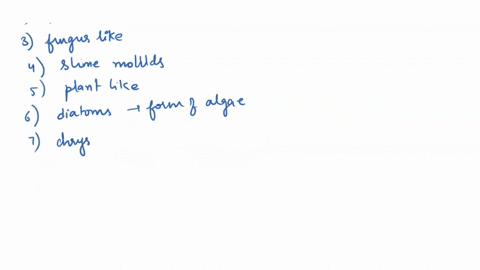 3) fungus like
4) slime mollds
5) plant like
6) diatoms → form of algae
7) chrys